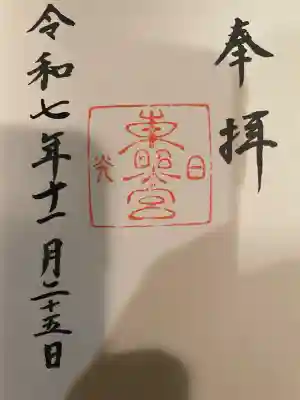 奉拝
日光
東照宮
令和七年十一月二十五日